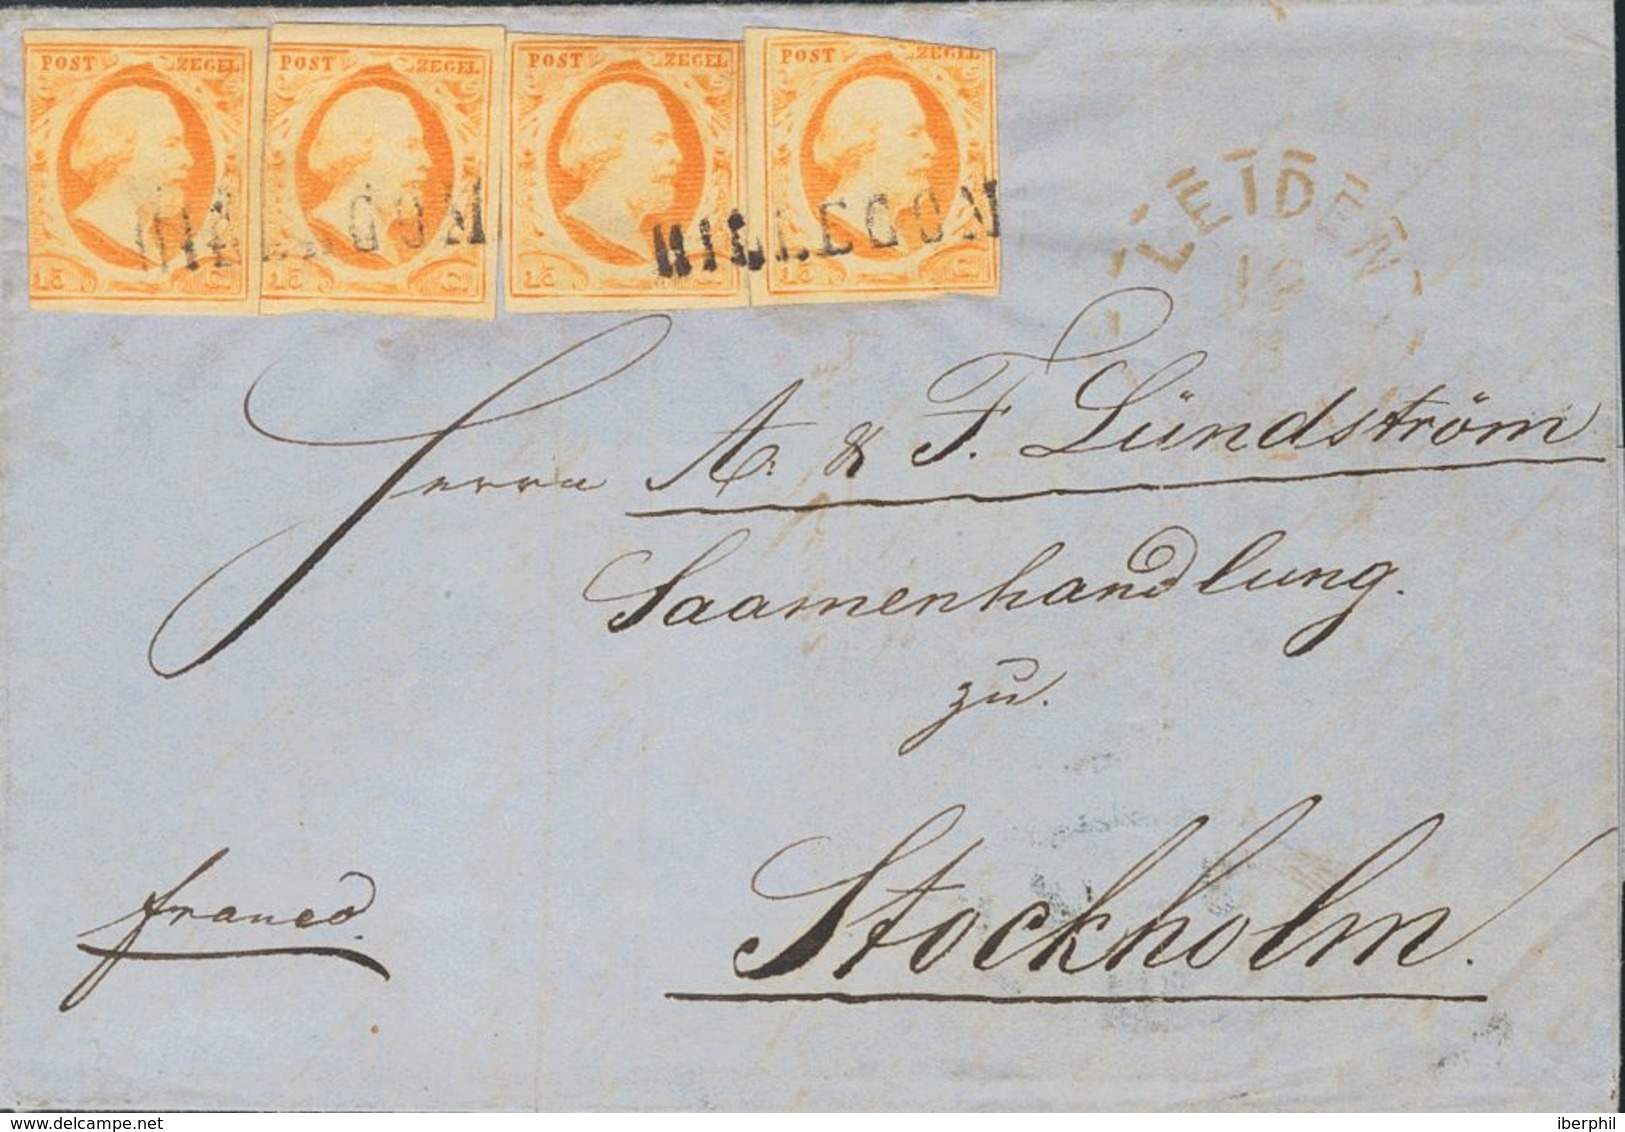 POST ZEGEL POST ZEGEL POST ZEGEL POST ZEGEL
HILLEGOM HILLEGOM
15 C 15 C 15 C 15 C
LEIDEN
Herrn A. & F. Lündström
Saamenhandlung.
zu.
Stockholm.
franco.
iberphil